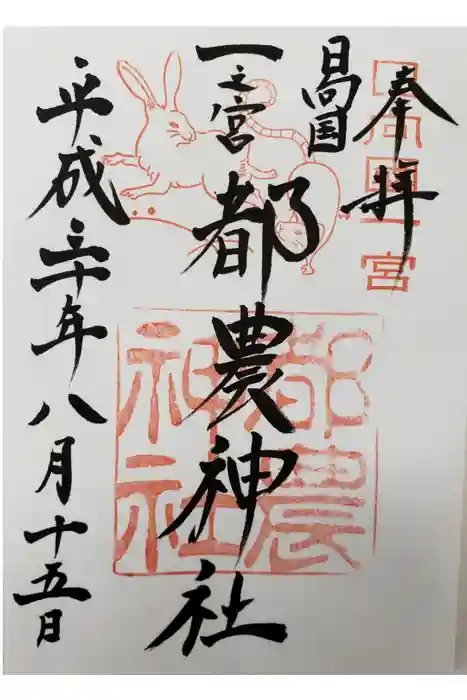 奉拝
日向国一宮
日向国
一之宮都農神社
都農
神社
平成三十年八月十五日